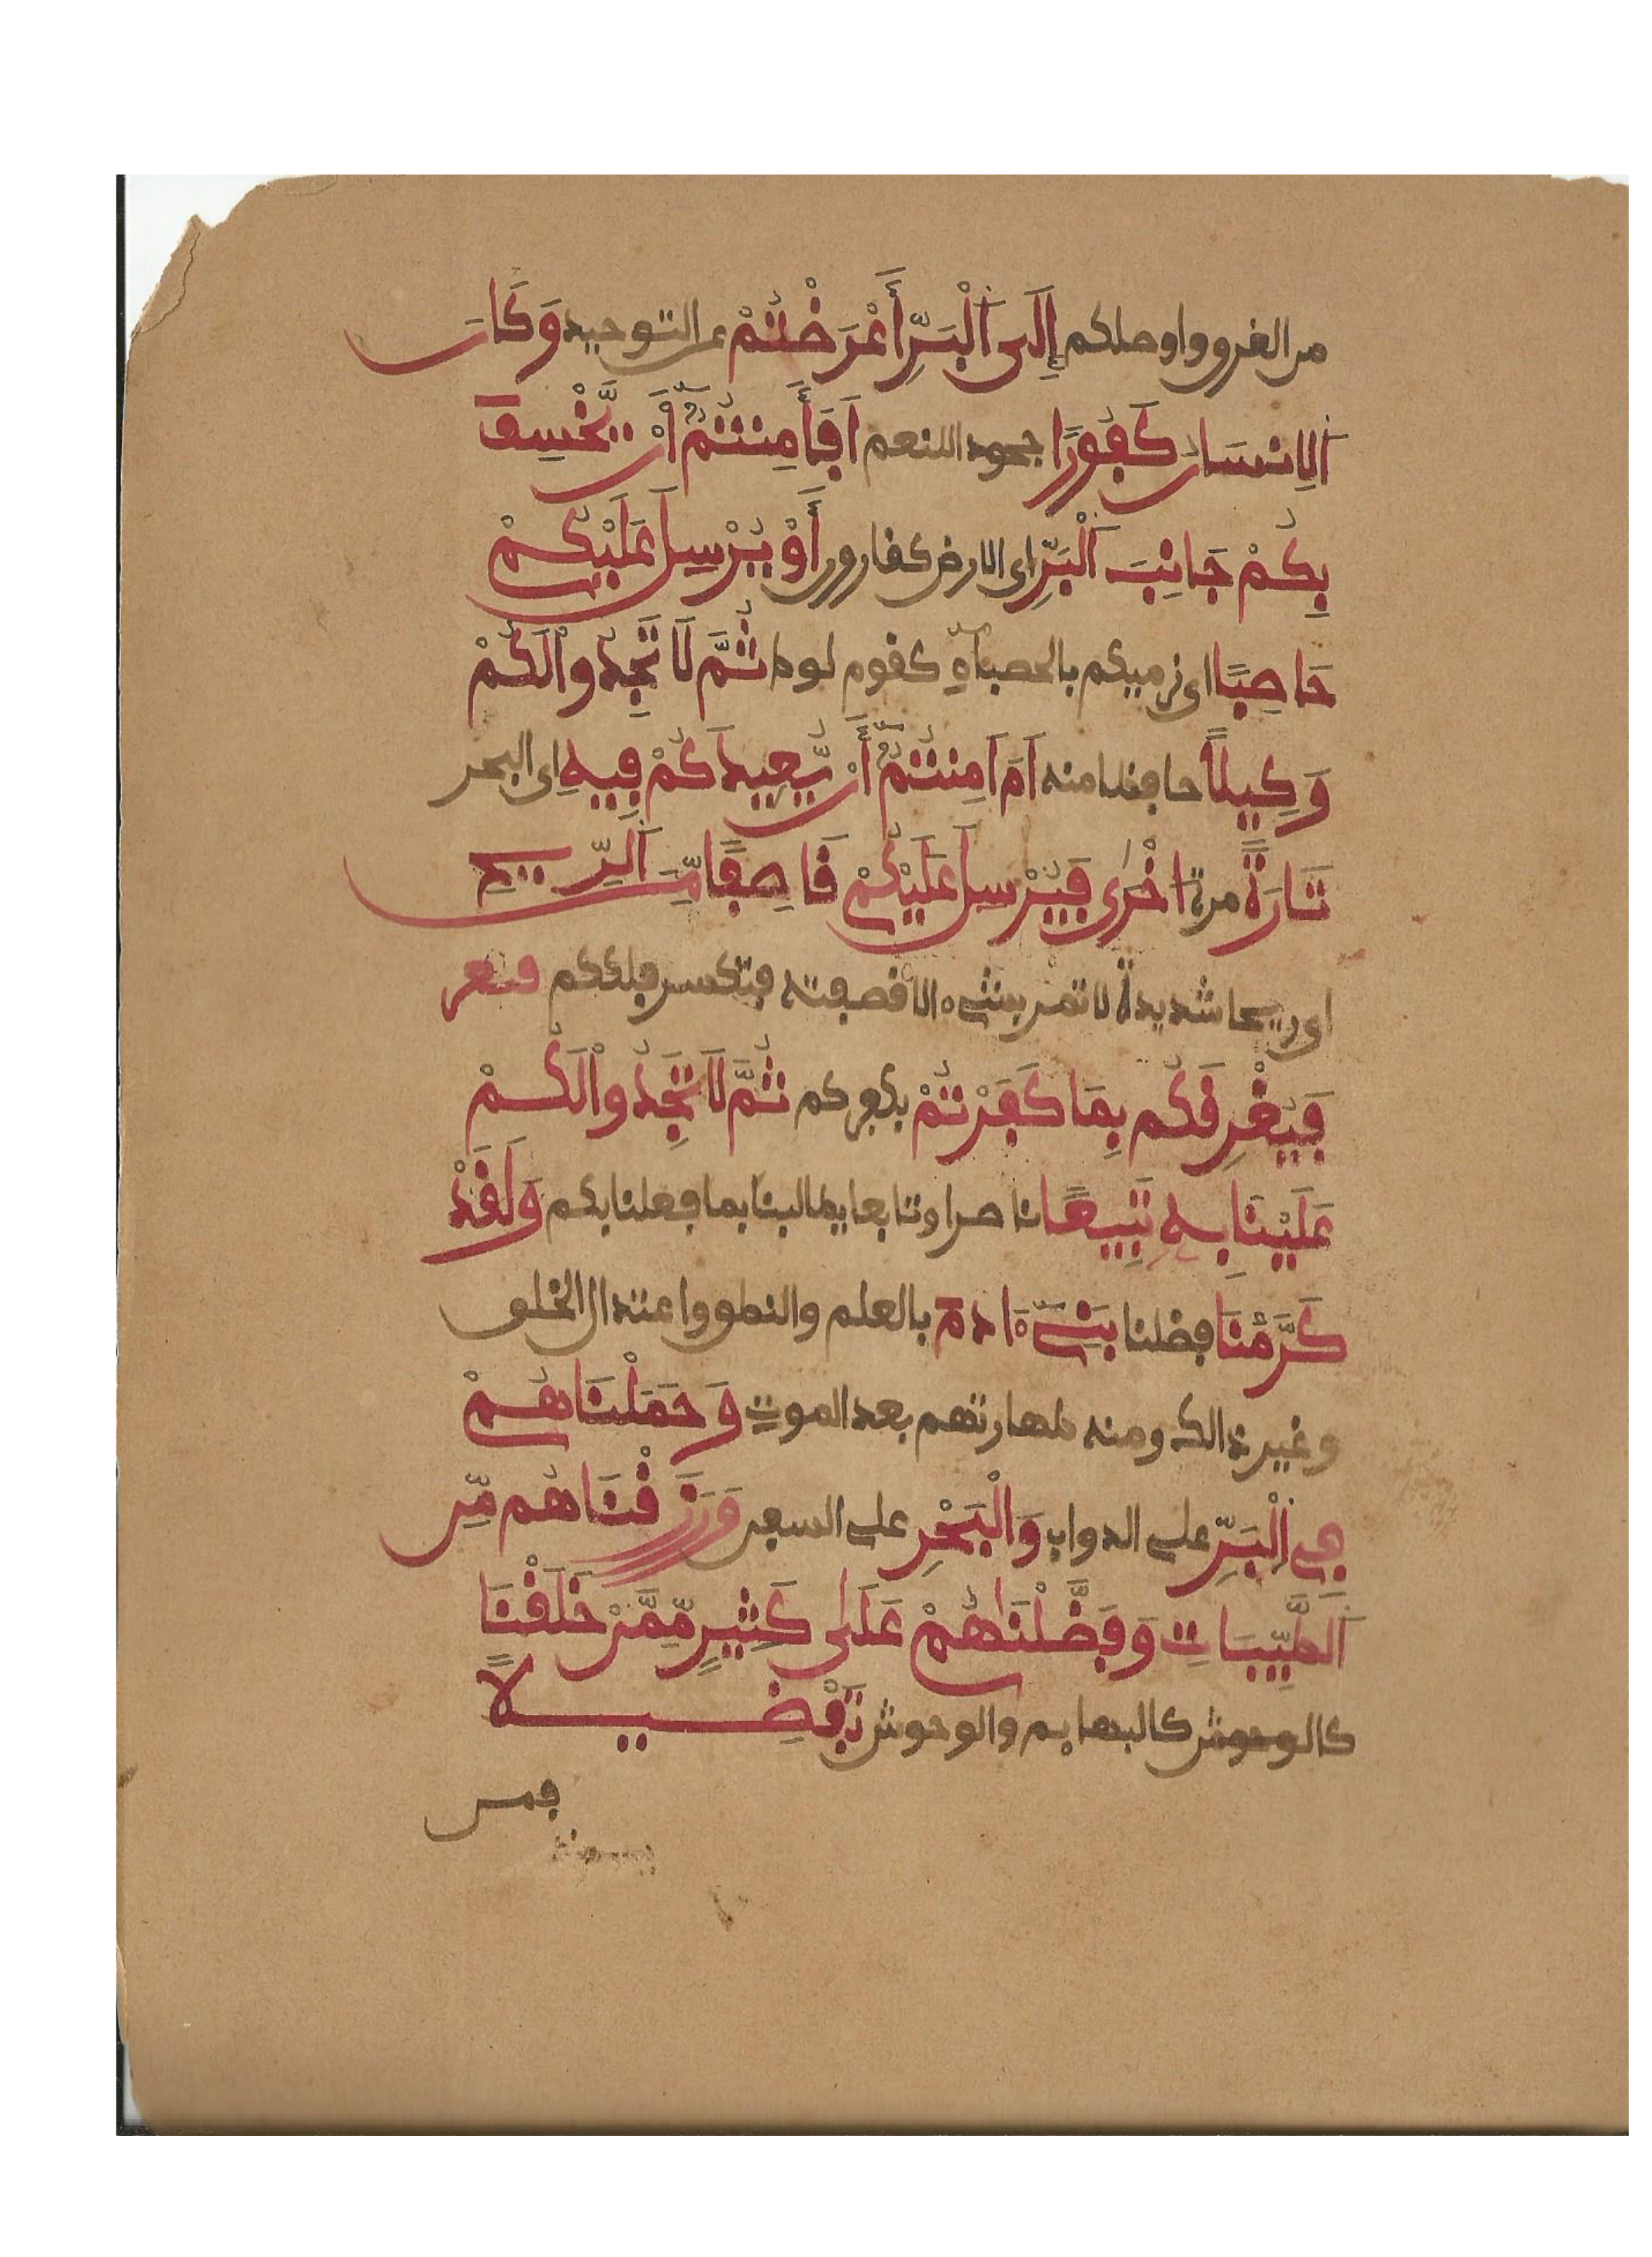 من الغرق واوصلكم إِلَى اَلْبَرِّ أَعْرَضْتُمْ عن التوحيد وَكَانَ
اَلِانسَانُ كَفُورًا جحود اللنعم اَفَأَمِنتُمُ أَنْ يَّخْسِفَ
بِكُمْ جَانِبَ اَلْبَرِّ اى الارض كقارون أَوْ يُرْسِلَ عَلَيْكُمْ
حَاصِبًا اى نرميكم بالحصباءِ كقوم لوط ثُمَّ لَا تَجِدُواْ لَكُمْ
وَكِيلًا حافظا منه اَمَ اَمِنتُمُ أَنْ يُّعِيدَكُمْ فِيهِ اى البحر
تَارَةً مرة اخْرَى فَيُرْسِلَ عَلَيْكُمْ قَاصِفًا مِّنَ اَلرِّيحِ
اى ريحا شديدة لا تمر بشىء الا قصفته فتكسر فلككم
فَيُغْرِقَكُم بِمَا كَفَرْتُمْ بكفركم ثُمَّ لَا تَجِدُواْ لَكُمْ
عَلَيْنَا بِهِ تَبِيعًا ناصرا وتابعا يطالبنا بما فعلنا بكم وَلَقَدْ
كَرَّمْنَا فضلنا بَنِىٓ ءَادَمَ بالعلم والنطق واعتدال الخلق
وغير ذالك ومنه طهارتهم بعد الموت وَحَمَلْنَاهُمْ
فِى اِلْبَرِّ على الدواب وَالْبَحْرِ على السفن وَرَزَقْنَاهُم مِّنَ
اَلطَّيِّبَاتِ وَفَضَّلْنَاهُمْ عَلَى كَثِيرٍ مِّمَّنْ خَلَقْنَا
كالوحوش كالبهايم والوحوش تَفْضِيلًا
فمن